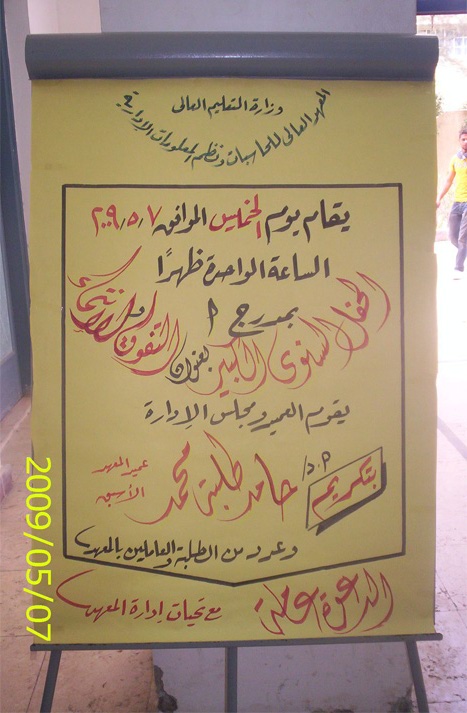 وزارة التعليم العالى
المعهد العالى للحاسبات ونظم المعلومات الإدارية
يقام يوم الخميس الموافق ٢٠٠٩/٥/٧
الساعة الواحدة ظهرًا
بمدرج أ
الحفل السنوى الكبير بعنوان التفوق والانتماء
يقوم العميد ومجلس الإدارة
بتكريم أ.د/ حامد طلبة محمد
عميد المعهد
الأسبق
وعدد من الطلبة والعاملين بالمعهد
الدعوة عامة
مع تحيات إدارة المعهد
2009/05/07